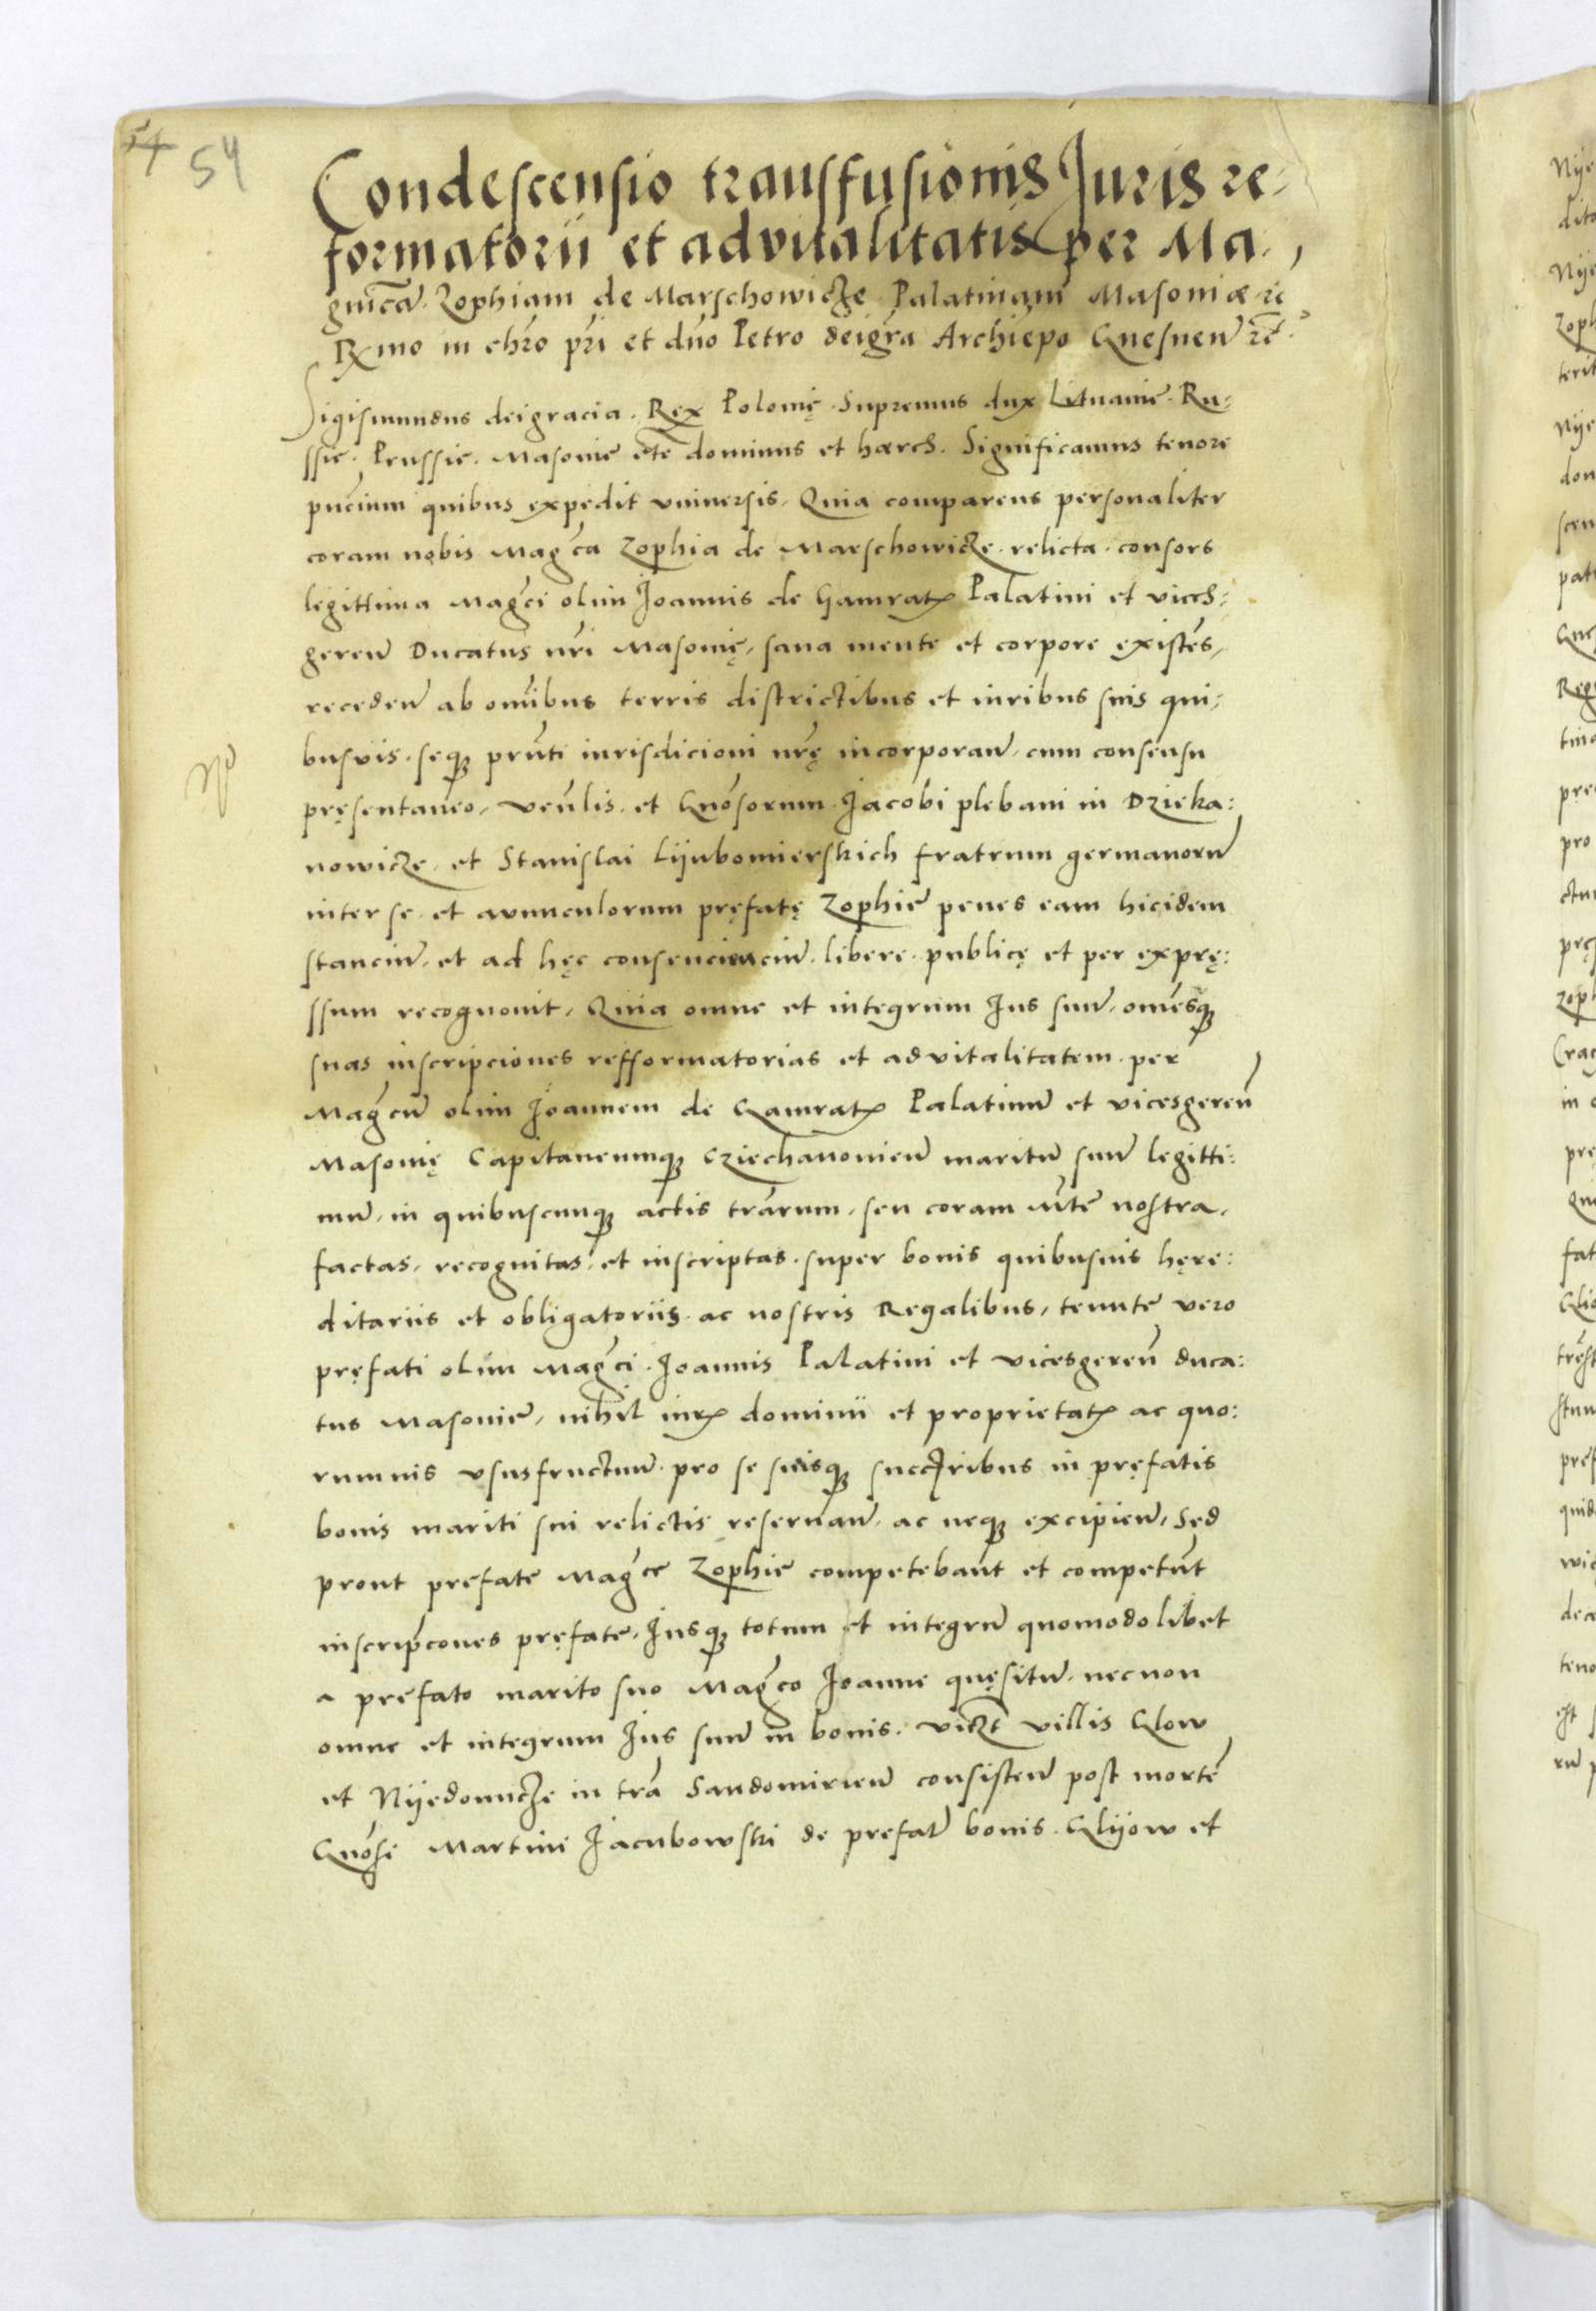 54 54
Condescensio transfusionis Juris re-
formatorii et advitalitatis per Ma-
gnicã Zophiam de Marschowicze Palatinam Masoniæ rc
Rxmo in chro pri et dno Petro deigra Archiepo Gnesnen rc.
Sigismundus deigracia. Rex Polonię. Supremus dux Lituanie. Ru-
ssie. Prussie. Masonie etc dominus et hæres. Significamus tenore
pncium quibus expedit vniuersis. Quia comparens personaliter
coram nobis Magca Zophia de Marschowicze. relicta. consors
legittima Magci olim Joannis de Gamrath Palatini et vices-
geren Ducatus nri Masonię, sana mente et corpore existes,
receden ab omibus terris districtibus et iuribus suis qui-
busuis. seq3 pnti iurisdicioni nrę incorporan. cum consensu
pręsentaneo, venlis. et Gnosorum Jacobi plebani in Dzieka:
nowicze. et Stanislai Lijubomierskich fratrum germanorũ
inter se. et avunculorum pręfatę Zophie penes eam hicidem
stanciũ. et ad hęc consencienciũ. libere. publicę et per exprę:
ssum recognouit, Quia omne et integrum Jus suũ. omesq3
suas inscripciones refformatorias et advitalitatem. per
Magcũ olim Joannem de Gamrath Palatinũ et vicesgeren
Masonię Capitaneumq3 Cziechanonien maritũ suũ legitti:
mũ, in quibuscunq3 actis trarum, seu coram Mte nostra,
factas, recognitas, et inscriptas. super bonis quibusuis hęre:
ditariis et obligatoriis. ac nostris Regalibus, tenute vero
pręfati olim Magci. Joannis Palatini et vicesgeren duca:
tus Masonie, nihil iuris dominii et proprietatis ac quo:
rumuis vsusfructuũ. pro se suisq3 succribus in pręfatis
bonis mariti sui relictis reseruan. ac neq3 excipien, Sed
prout prefate Magce Zophie competebant et competunt
inscripcones pręfate, Jusq3 totum et integrũ quomodolibet
a prefato marito suo Magco Joanne quęsitũ. necnon
omne et integrum Jus suũ in bonis. viczt villis Glow
et Nijedomicze in tra Sandomirien consisten post mortẽ
Gnosi Martini Jacubowski de prefat bonis. Glijow et